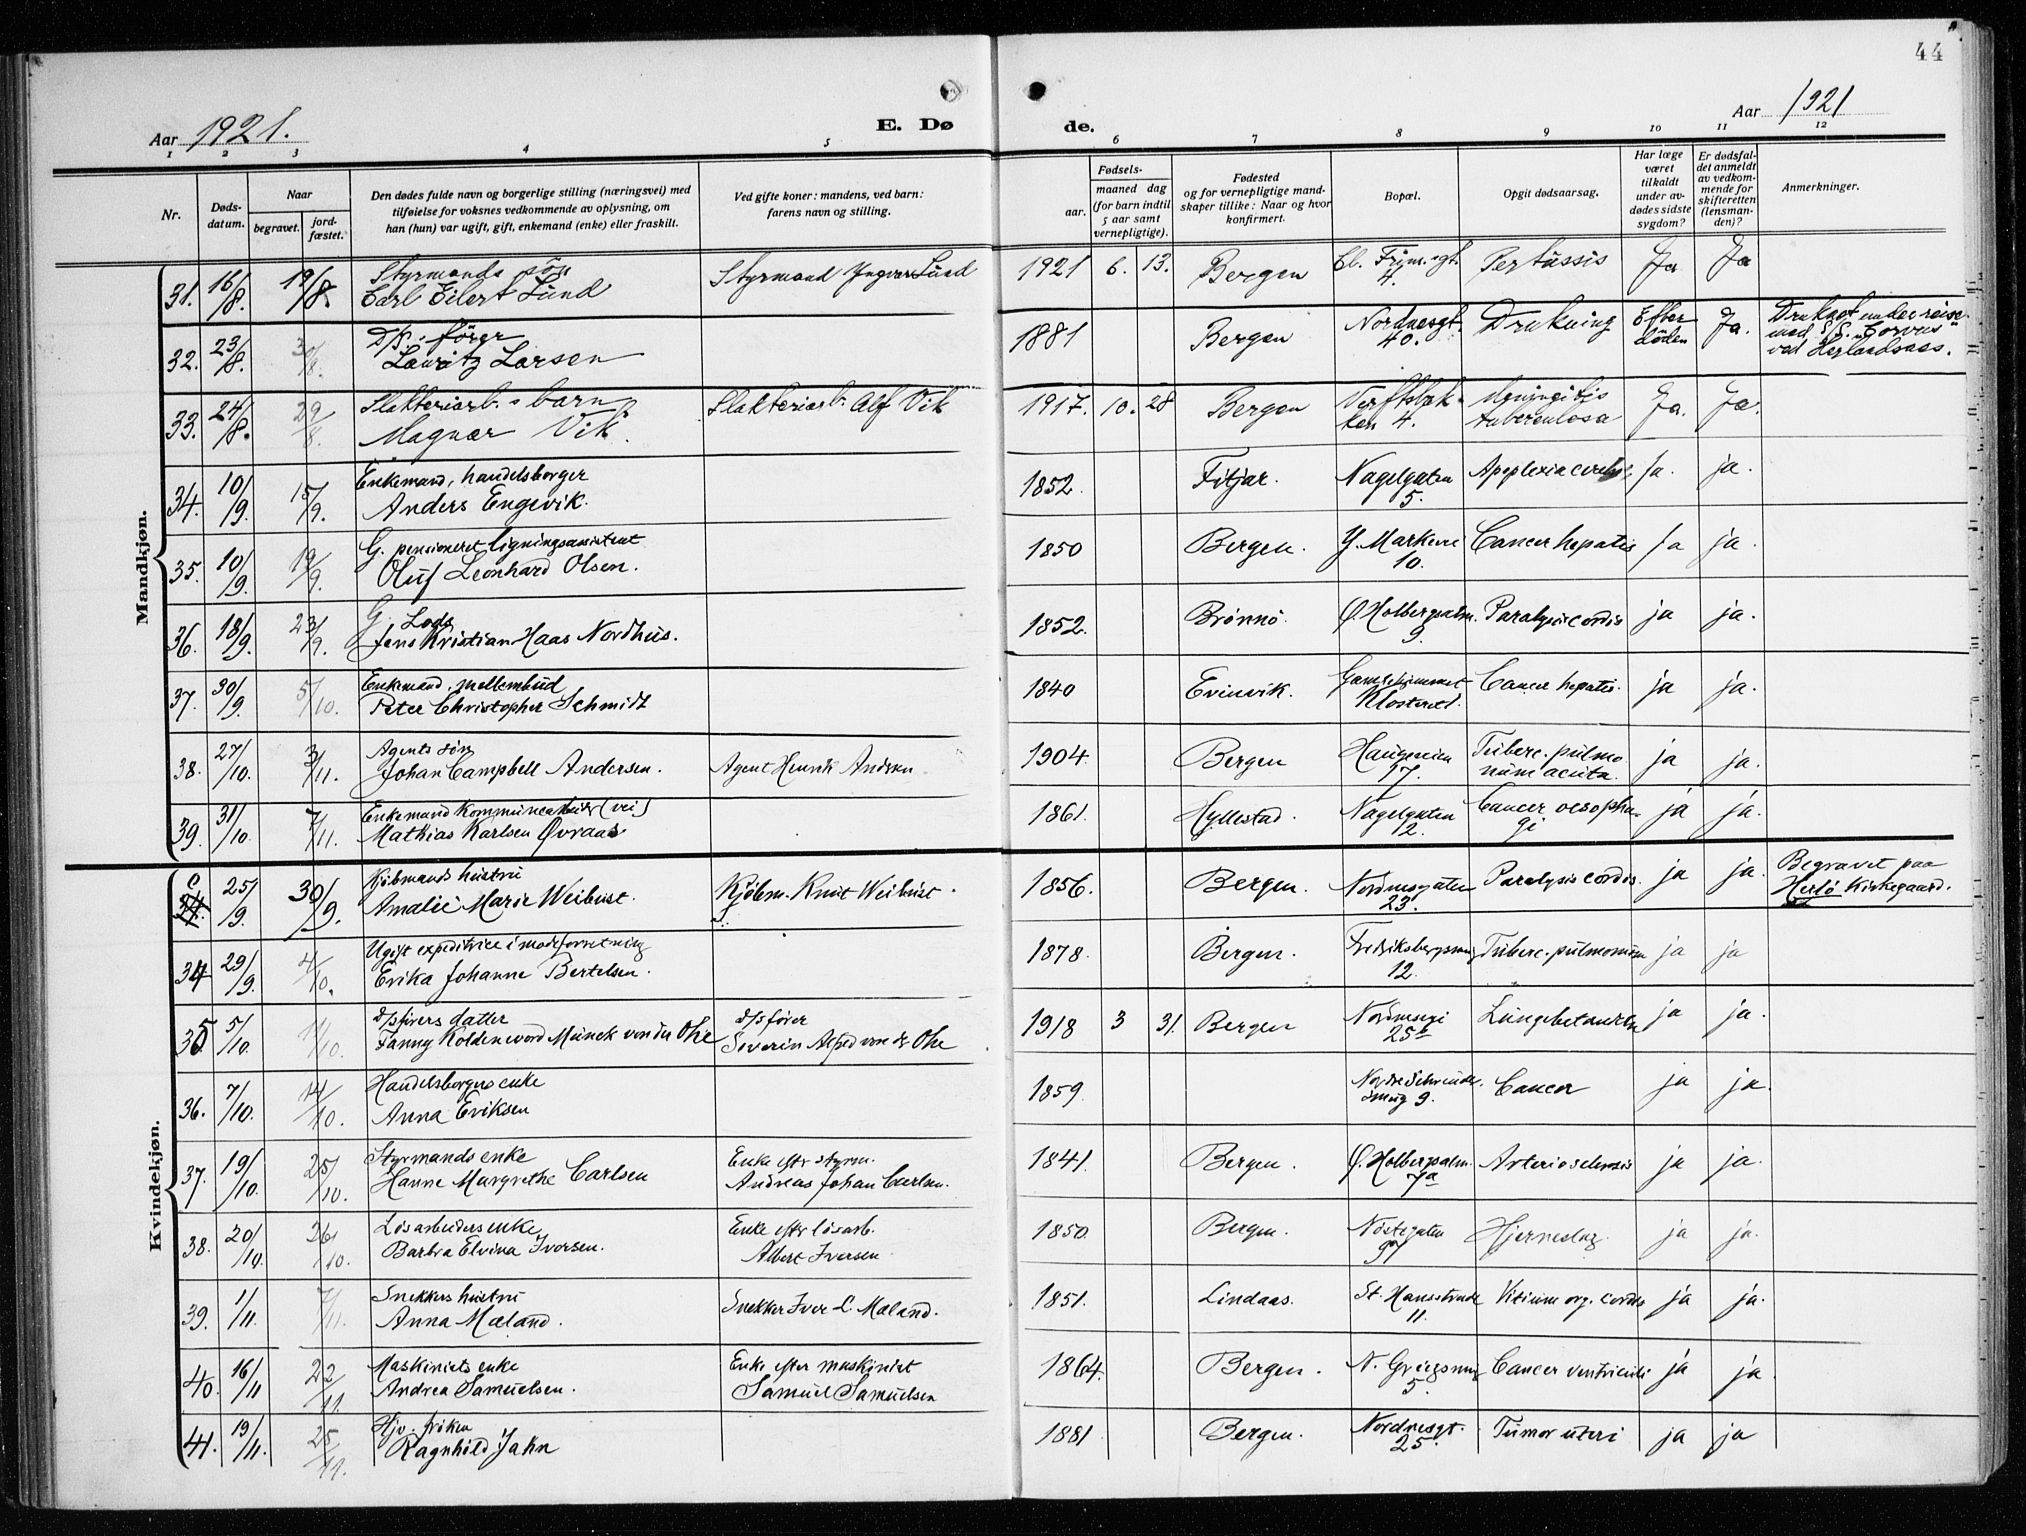 44
Aar 1921.
E. Dø
de.
Aar 1921
1 2 3 4 5 6 7 8 9 10 11 12
Nr.
Døds-
datum.
Naar
begravet.
jord-
fæstet.
Den dødes fulde navn og borgerlige stilling (næringsvei) med
tilføielse for voksnes vedkommende av oplysning, om
han (hun) var ugift, gift, enkemand (enke) eller fraskilt.
Ved gifte koner: mandens, ved barn:
farens navn og stilling.
Fødsels-
aar.
maaned dag
(for barn indtil
5 aar samt
vernepligtige).
Fødested
og for vernepligtige mand-
skaper tillike: Naar og hvor
konfirmert.
Bopæl.
Opgit dødsaarsag.
Har læge
været
tilkaldt
under av-
dødes sidste
sygdom?
Er dødsfal-
det anmeldt
av vedkom-
mende for
skifteretten
(lensman-
den)?
Anmerkninger.
Mandkjøn.
31. 16/8. 19/8. Styrmands søn
Carl Eilert Lund
Styrmand Yngvar Lund 1921 6. 13. Bergen
4. Pertussis Ja Ja
32. 23/8. 30/8. D/s. fører
Lauritz Larsen
1881 Bergen Nordnesgt.
40. Drukning Efter
døden Ja. Druknet under reise
med S/S. "Corvus"
ved Herlandsnes.
33. 24/8. 29/8. Slakteriarb.s barn
Magnar Vik.
Slakteriarb. Alf Vik 1917. 10. 28 Bergen Verftsbak-
ken 4. Meningitis
tuberculosa Ja. Ja.
34. 10/9. 15/9. Enkemand, handelsborger
Anders Engevik.
1852. Fitjar. Nagelgaten
5. Apoplexia cerebri ja. ja.
35. 10/9. 19/9. G. pensioneret ligningsassistent
Oluf Leonhard Olsen.
1850 Bergen. Y. Markevei
10. Cancer hepatis ja ja.
36. 18/9. 23/9. G. Lods
Jens Kristian Haas Nordhus.
1852. Brønnø. Ø. Holbergsalm.
9. Paralysis cordis ja ja.
37. 30/9. 5/10. Enkemand, mellembud
Peter Christopher Schmidt
1840 Evinvik. Gamlehjemmet
Klosteret. Cancer hepatis. ja ja.
38. 27/10. 3/11. Agents søn
Johan Campbell Andersen.
Agent Henrik Andersen 1904. Bergen Haugeveien
17. Tuberc. pulmo
num acuta. ja ja.
39. 31/10. 7/11. Enkemand kommunearbeider (vei)
Mathias Karlsen Øvraas
1861. Hyllestad. Nagelgaten
12. Cancer oesopha-
gi ja ja.
Kvindekjøn.
25/9. 30/9. Kjøbmands hustru
Amalie Marie Weibust.
Kjøbm. Knut Weibust. 1856. Bergen. Nordnesgaten
23. Paralysis cordis. ja ja. Begravet paa
Herlø Kirkegaard.
34 29/9. 4/10. Ugift expeditrice i modeforretning
Erika Johanne Bertelsen.
1878. Bergen. Fredriksbergsmug
12. Tuberc. pulmonum ja ja
35 5/10. 11/10. d/sførers datter
Fanny Koldenword Münck von der Ohe
d/s fører
Severin Alfred von d. Ohe 1918 3 31. Bergen Nordnesvei
25b Lungebetændelse ja ja.
36. 7/10. 14/10. Handelsborgers enke
Anna Eriksen
1859. Nordre Schreuder.
smug 9. Cancer ja ja.
37. 19/10. 25/10. Styrmands enke
Hanne Margrethe Carlsen
Enke efter styrm.
Andreas Johan Carlsen. 1841. Bergen. Ø. Holbergsalm.
7a Arteriosclerosis ja ja.
38. 20/10. 26/10. Løsarbeiders enke
Barbra Elvina Iversen.
Enke efter løsarb.
Albert Iversen 1850. Bergen. Nøstegaten
97 Hjerneslag. ja ja.
39. 1/11. 7/11. Snekkers hustru
Anna Mæland.
Snekker Iver L. Mæland. 1851. Lindaas. St. Hansstræde
11. Vitium org. cordis ja ja.
40. 16/11 22/11. Maskinists enke
Andrea Samuelsen.
Enke efter maskinist
Samuel Samuelsen 1864. Bergen. N. Griegsmug
5. Cancer ventriculi ja ja.
41. 19/11. 25/11. Hjv. frøken
Ragnhild Jahn
1881 Bergen. Nordnesgt.
25. Tumor uteri ja ja